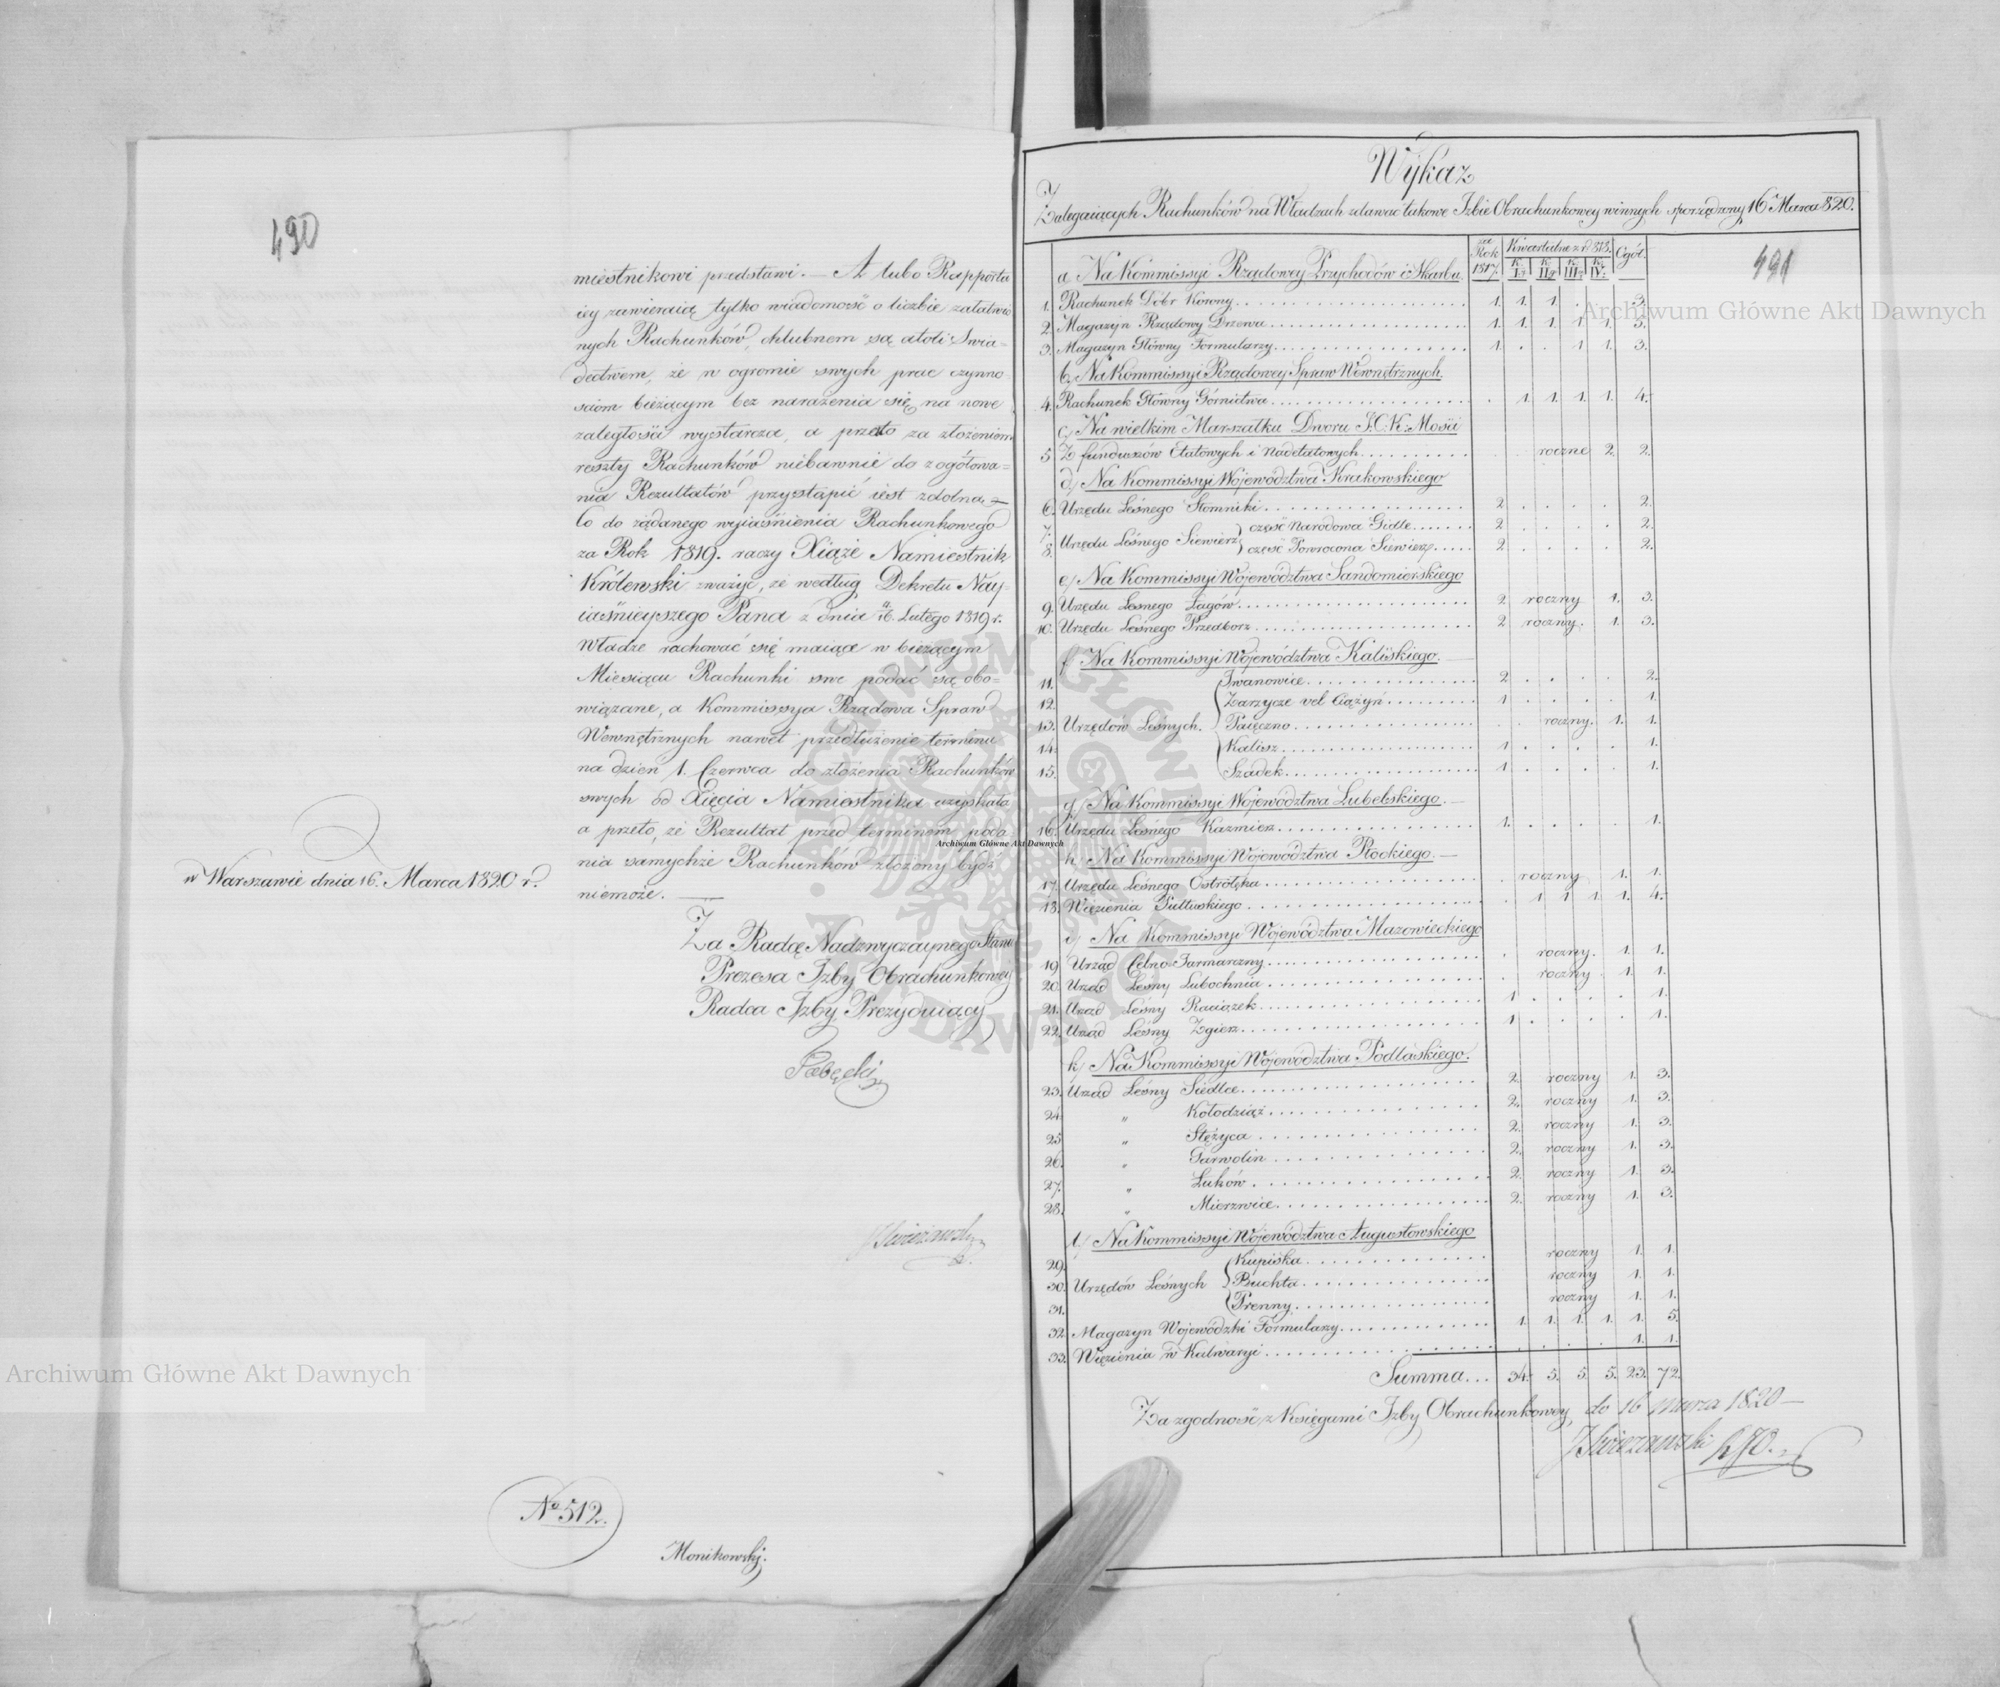 490
miestnikowi przedstawi. — A lubo Rapporta
iey zawieraią tylko wiadomość o liczbie załatwio
nych Rachunków, chlubnem są atoli Swia-
dectwem, że w ogromie swych prac czynno-
sciom bieżącym bez narażenia się na nowe
zaległości wystarcza, a przeto za złożeniem
reszty Rachunków niebawnie do zogółowa-
nia Rezultatów przystąpić iest zdolna. —
Co do żądanego wyiaśnienia Rachunkowego
za Rok 1819. raczy Xiążę Namiestnik
Królewski zważyć, że według Dekretu Nay-
iaśnieyszego Pana z dnia 16. Lutego 1819 r.
Władze rachować się maiące w bieżącym
Miesiącu Rachunki swe podać są obo-
wiązane, a Kommissya Rządowa Spraw
Wewnętrznych nawet przedłużenie terminu
na dzień 1. Czerwca do złożenia Rachunków
swych od Xięcia Namiestnika uzyskała
a przeto, że Rezultat przed terminem poda-
nia samychże Rachunków złożony bydź
niemoże.
w Warszawie dnia 16. Marca 1820 r.
Za Radcę Nadzwyczaynego Stanu
Prezesa Izby Obrachunkowey
Radca Izby Prezyduiący
No 512.
Monikowski.
Wykaz
Zalegaiących Rachunków na Władzach zdawać takowe Izbie Obrachunkowey winnych sporządzony 16 Marca 820.
491
za Rok 1817. Kwartalne z r. 818. Ogół.
K. I. K. II. K. III. K. IV.
a. Na Kommissyi Rządowey Przychodów i Skarbu.
1. Rachunek Dóbr Korony 1. 1. 1. 3.
2. Magazyn Rządowy Drzewa 1. 1. 1. 1. 1. 5.
3. Magazyn Główny Formularzy 1. . . 1 1. 3.
b. Na Kommissyi Rządowey Spraw Wewnętrznych.
4. Rachunek Główny Górnictwa . 1. 1. 1. 1. 4.
c) Na wielkim Marszałku Dworu J.C.K. Mości
5 Z funduszów Etatowych i nadetatowych roczne 2. 2.
d) Na Kommissyi Województwa Krakowskiego
6. Urzędu Leśnego Słomniki 2. . . . . 2.
7. część Narodowa Gidle 2. . . . . 2.
Urzędu Leśnego Siewierz
8. część Powrocona Siewierz 2. . . . . 2.
e) Na Kommissyi Województwa Sandomierskiego
9. Urzędu Leśnego Łagów 2. roczny 1. 3.
10. Urzędu Leśnego Przedborz 2 roczny. 1. 3.
f Na Kommissyi Województwa Kaliskiego.
11. Iwanowice 2. . . . . 2.
12. Zarzycze vel Ciążyń 1 . . . . 1.
13. Urzędów Leśnych. Paięczno . . roczny. 1. 1.
14. Kalisz 1. . . . . 1.
15. Szadek 1. . . . . 1.
g) Na Kommissyi Województwa Lubelskiego.
16. Urzędu Leśnego Kazmierz 1. . . . . 1.
h) Na Kommissyi Województwa Płockiego.
17. Urzędu Leśnego Ostrołęka . roczny 1. 1.
18. Więzienia Pułtuskiego . 1 1 1. 1. 4.
i) Na Kommissyi Województwa Mazowieckiego
19 Urząd Celno-Jarmarczny . roczny. 1. 1.
20. Urząd Leśny Lubochnia . roczny. 1. 1.
21. Urząd Leśny Raciążek 1 . . . . 1.
22. Urząd Leśny Zgierz 1. . . . . 1.
k) Na Kommissyi Województwa Podlaskiego.
23. Urząd Leśny Siedlce 2. roczny 1. 3.
24. " Kołodziąż 2. roczny 1. 3.
25 " Stężyca 2. roczny 1. 3.
26. " Garwolin 2. roczny 1. 3.
27. " Łuków 2. roczny 1. 3.
28. " Mierzwice 2. roczny 1. 3.
l) Na Kommissyi Województwa Augustowskiego
29. Kupiska roczny 1. 1.
30. Urzędów Leśnych Buchta roczny 1. 1.
31. Prenny roczny 1. 1.
32. Magazyn Wojewódzki Formularzy 1. 1. 1. 1. 1. 5.
33. Więzienia w Kalwaryi . . . . 1. 1.
Summa... 34. 5. 5. 5. 23. 72.
Za zgodność z Księgami Izby Obrachunkowey, do 16 marca 1820 —
Archiwum Główne Akt Dawnych
Archiwum Główne Akt Dawnych
Archiwum Główne Akt Dawnych
ARCHIWUM GŁÓWNE AKT DAWNYCH